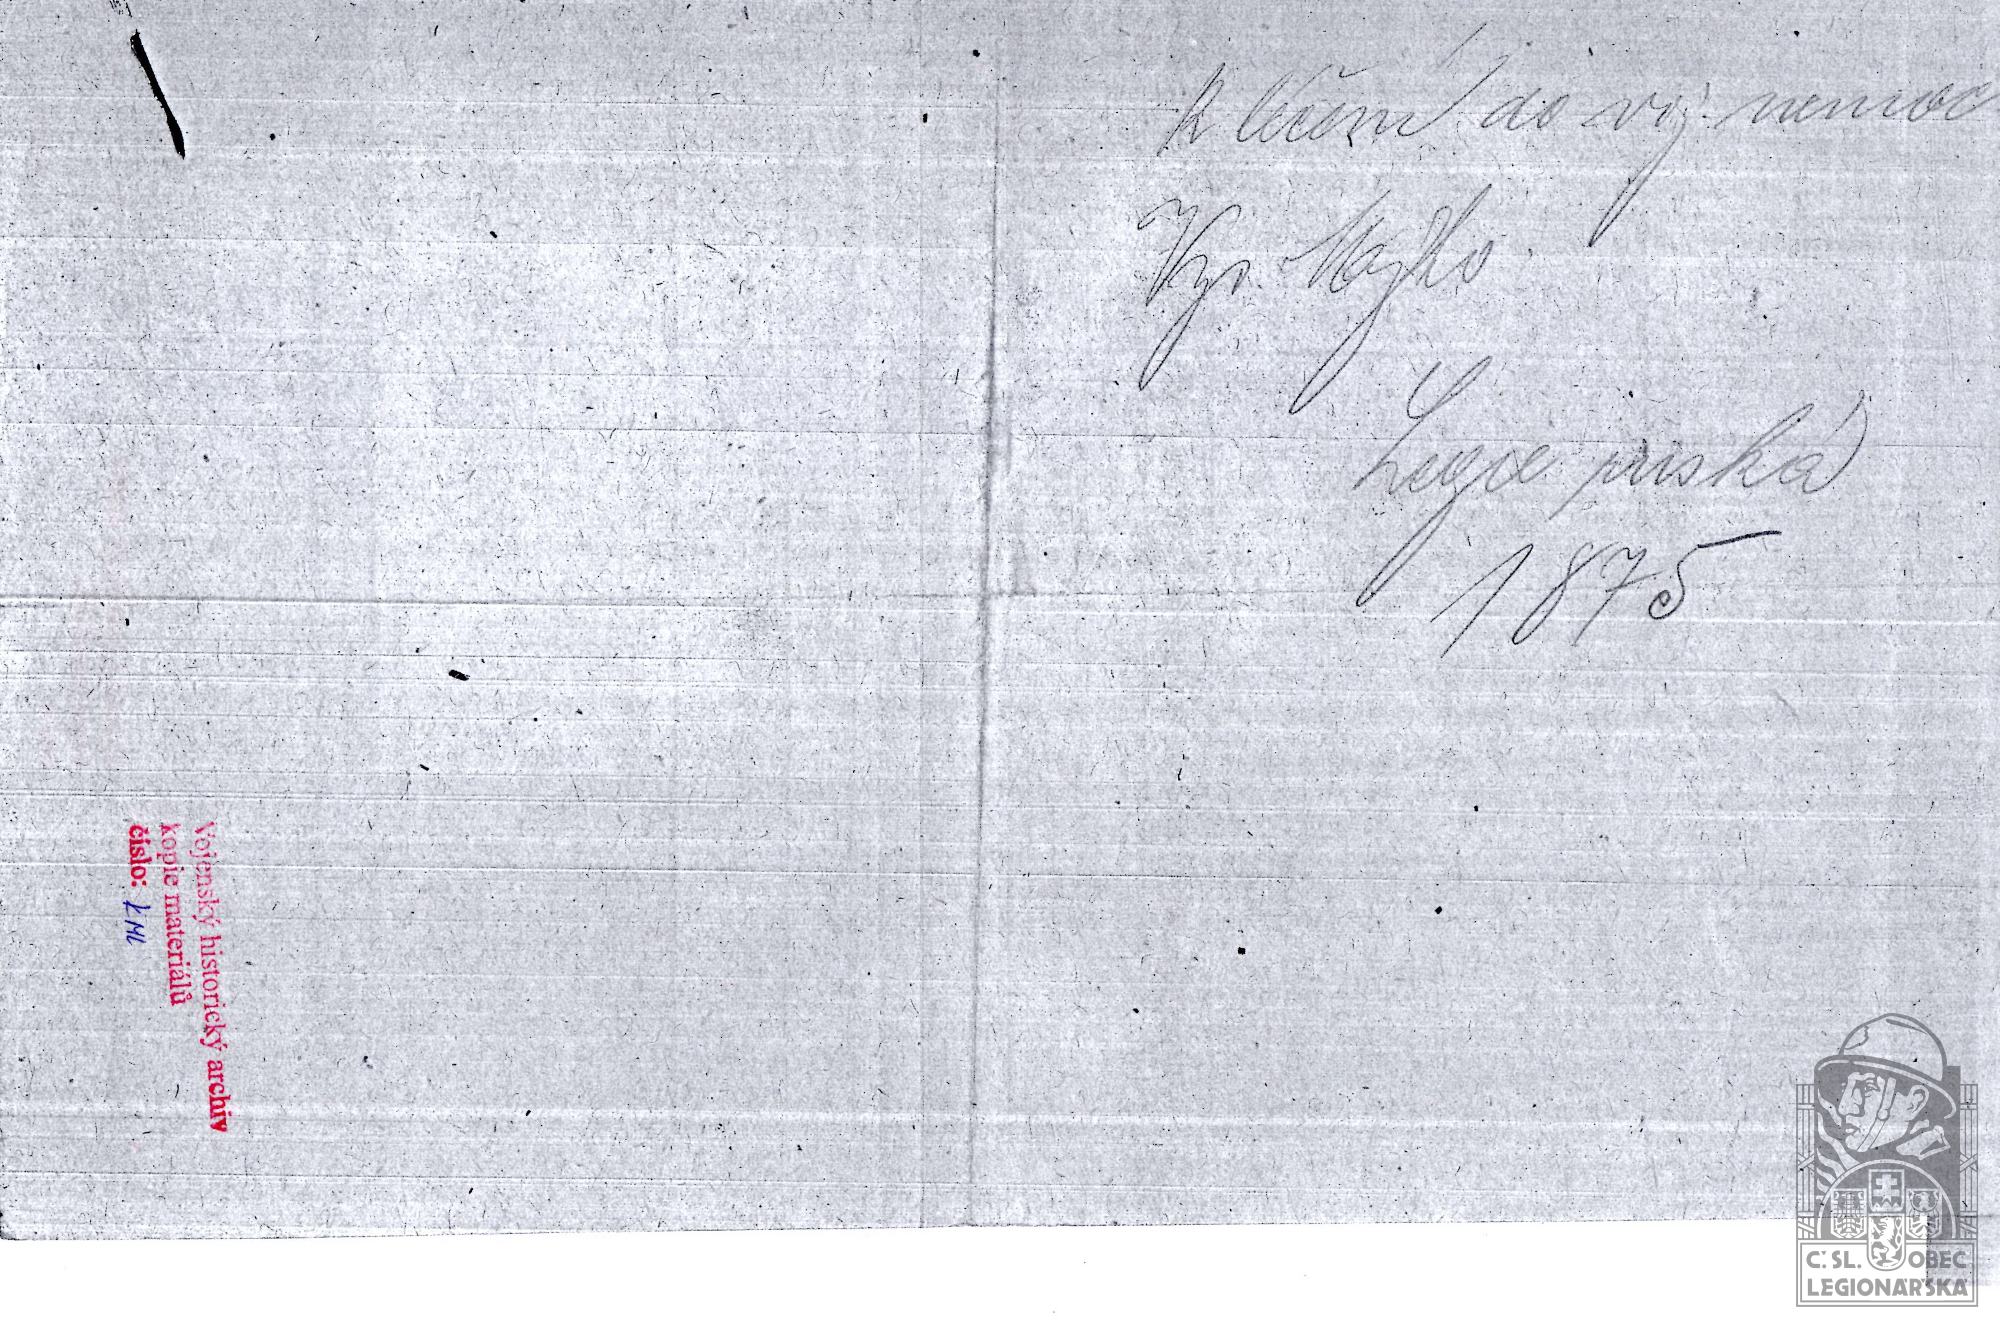 k léčení do voj. nemoc
Vys. Mýto
Legie ruská
1875
Vojenský historický archiv
kopie materiálů
číslo:
Č. SL. OBEC
LEGIONÁŘSKÁ